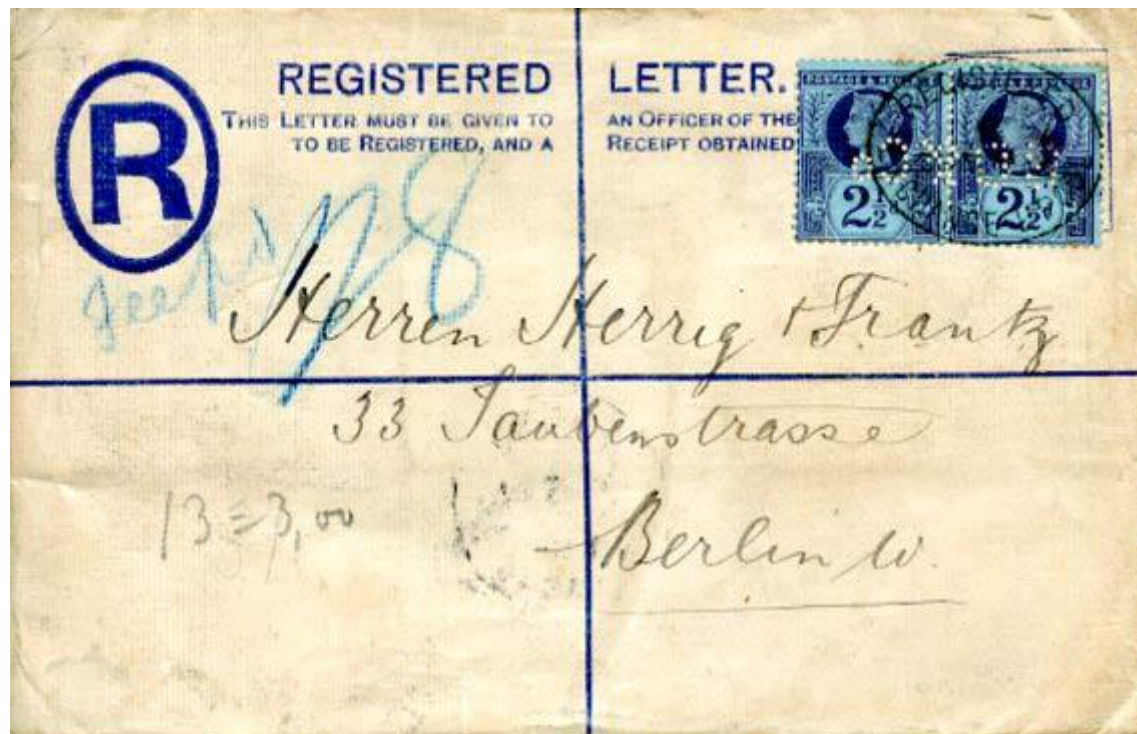 REGISTERED LETTER.
THIS LETTER MUST BE GIVEN TO AN OFFICER OF THE
TO BE REGISTERED, AND A RECEIPT OBTAINED
R
POSTAGE & REVENUE
2½ 2½
28
Herren Herrig + Frantz
33 Taubenstrasse
13 3,00
Berlin W.